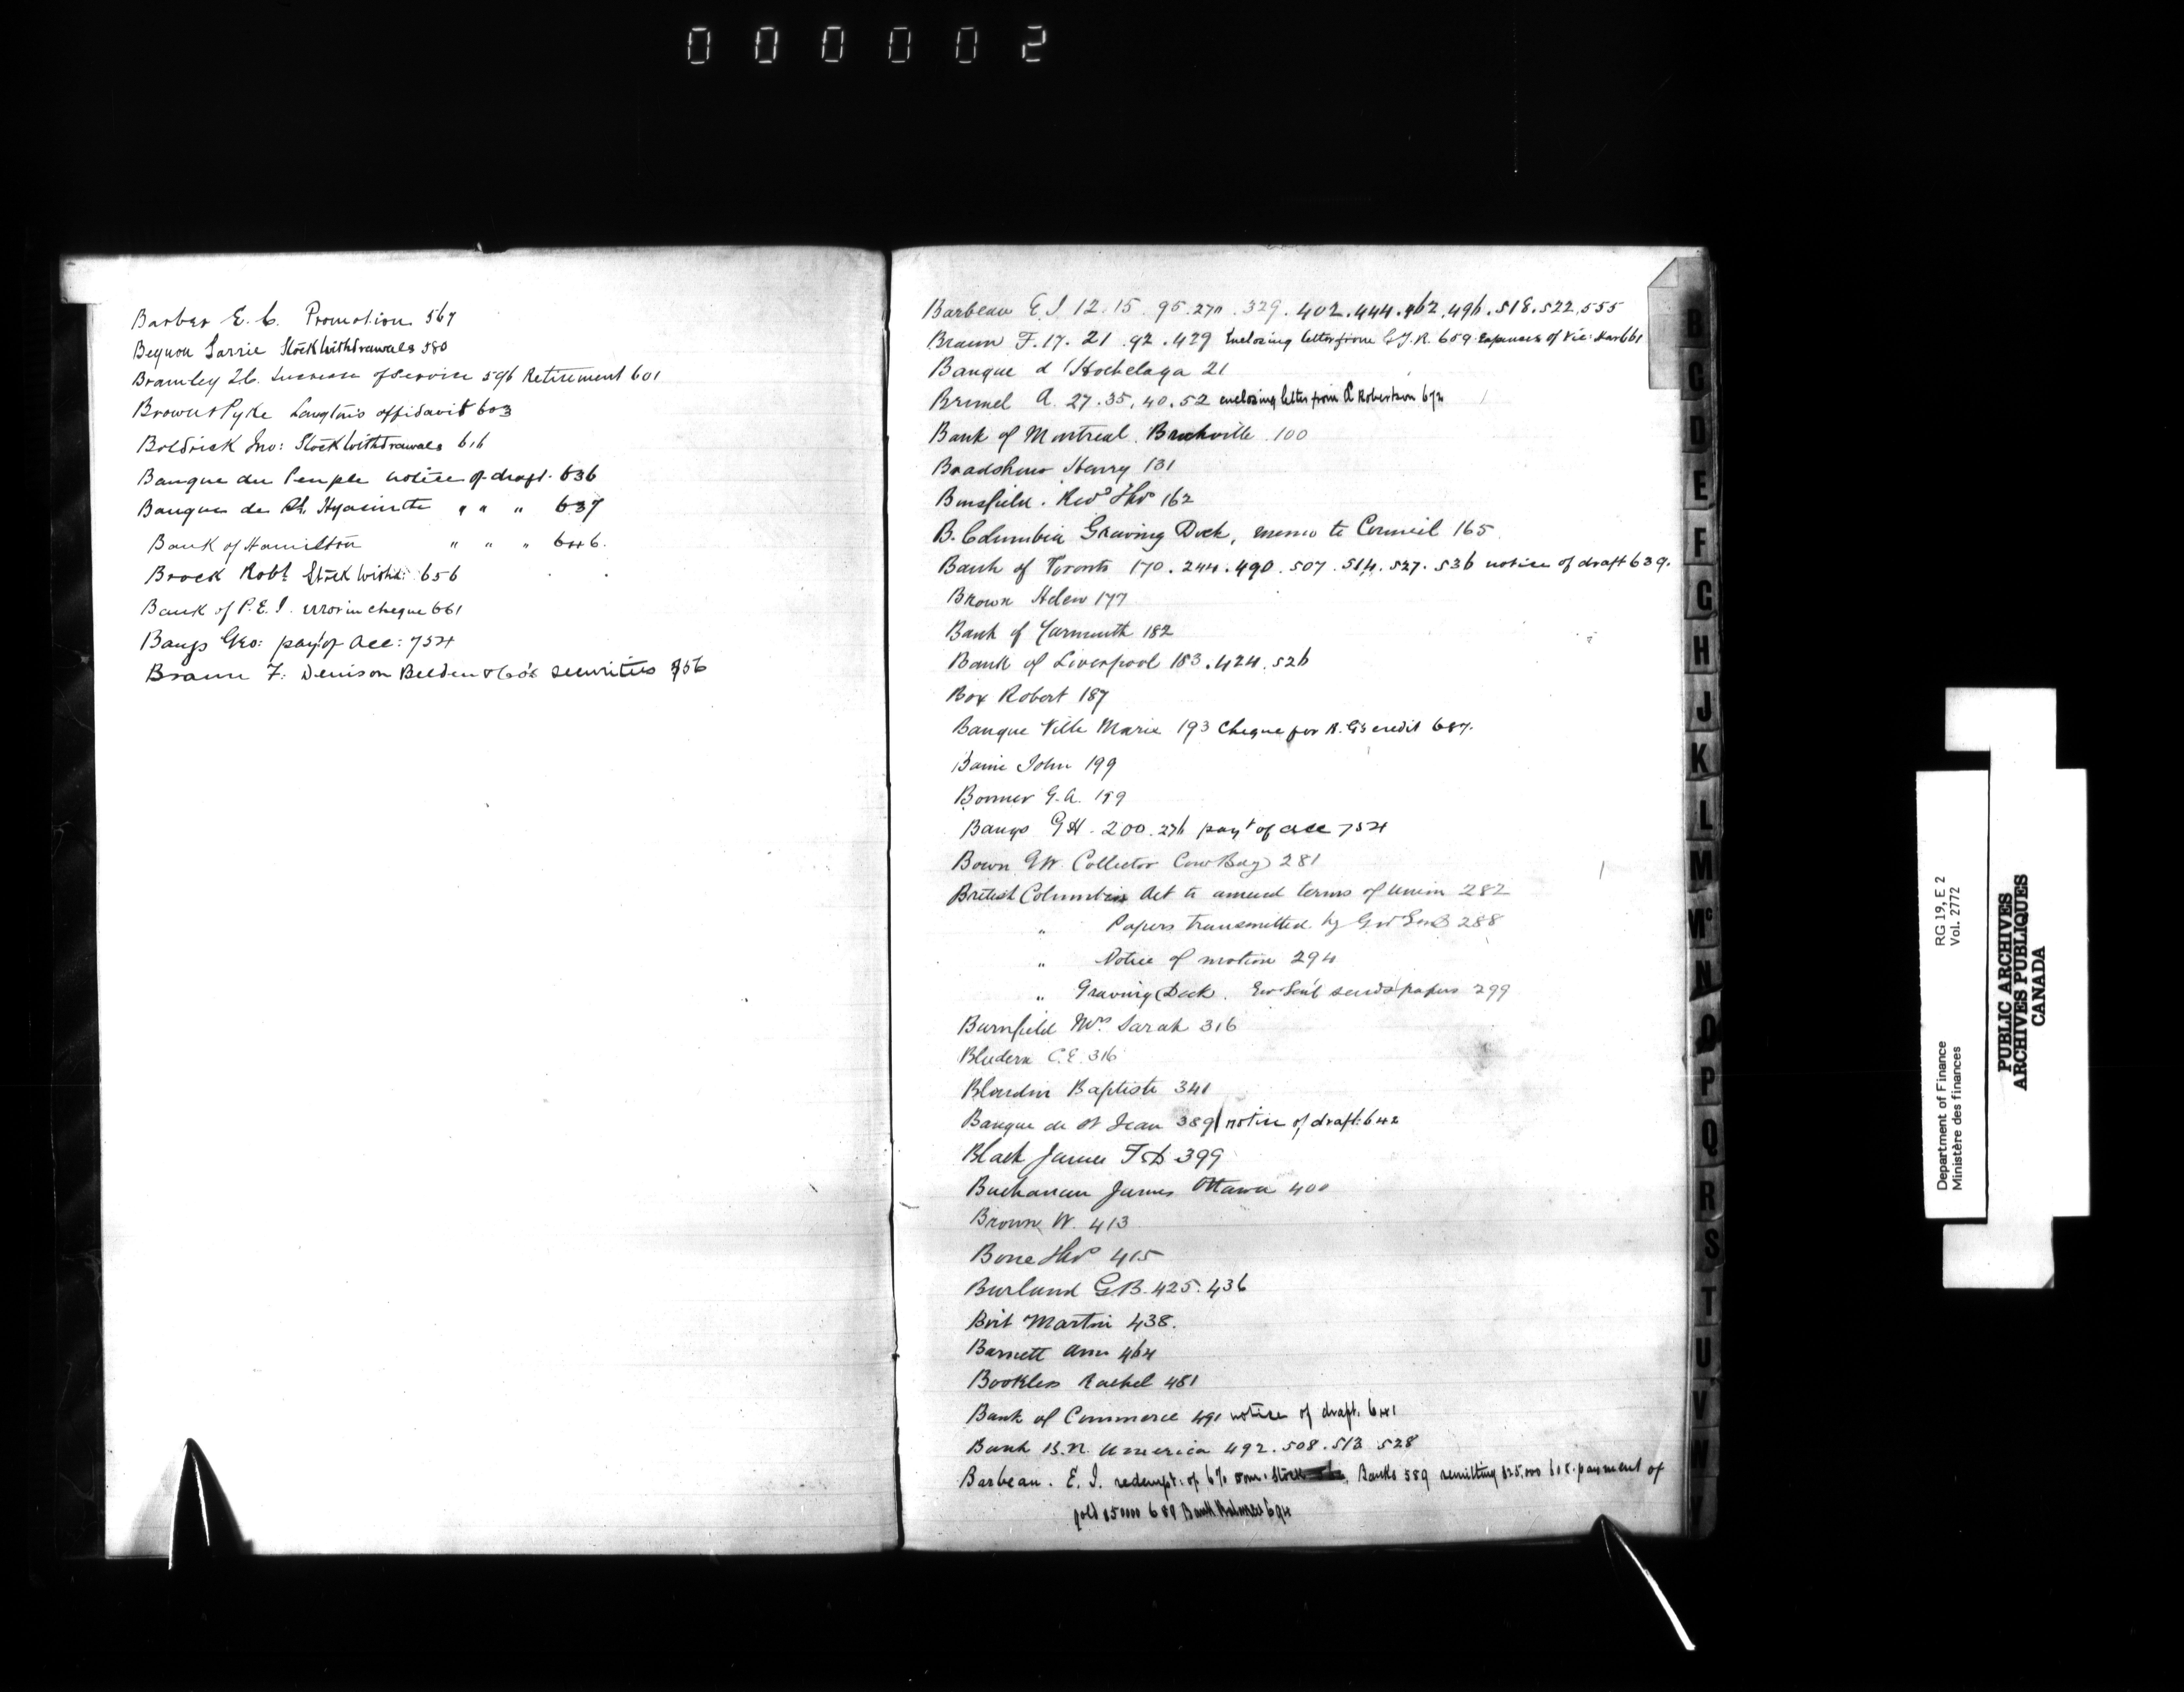 000002
Barber E. C. Promotion 567
Bequou Larrie Stock Withdrawals 580
Bramley Increase of Service 596 Retirement 601
Brown & Pyke Langtons affidavit 603
Boldrick Jno: Stock Withdrawals 616
Banque du Peuple notice of draft. 636
Banque de St. Hyacinthe " " " 637
Bank of Hamilton " " " 646.
Brock Robt Stock Withd: 656
Bank of P.E.I. error in cheque 661
Bangs Geo: pay't of acc: 754
Braun F. Denison Belden & Co's securities 756
Barbeau E. J. 12. 15. 95. 270. 329. 402. 444. 462. 496. 518. 522. 555
Braun F. 17. 21. 92. 429 Enclosing letter from 659 Expenses of Vic: 661
Banque d'Hochelaga 21
Brunel A. 27. 35. 40. 52 enclosing letter from Robertson 672
Bank of Montreal. Brockville 100
Bradshaw Henry 131
Revd Thos 162
B. Columbia Graving Dock, memo to Council 165
Bank of Toronto 170. 244. 490. 507. 514. 527. 536 notice of draft 639.
Brown Helen 177
Bank of Yarmouth 182
Bank of Liverpool 183. 424. 526
Box Robert 187
Banque Ville Marie 193 Cheque for R. G's credit 687.
John 199
Bonner G. A. 199
Bangs G H. 200. 276 pay't of acc 754
Bown G W. Collector Cow Bay 281
British Columbia Act to amend terms of union 282
" Papers transmitted by Gov Genl 288
" Notice of motion 294
" Graving Dock. Gov Genl sends papers 299
Burnfield Mrs. Sarah 316
C. E. 316
Blondin Baptiste 341
Banque de St Jean 389 notice of draft: 642
Black James 399
Buchanan James Ottawa 400
Brown W. 413
Bone Thos 415
Burland G. B. 425. 436
Martin 438.
Barnett Ann 464
Bookless Rachel 481
Bank of Commerce 491 notice of draft. 641
Bank B. N. America 492. 508. 513 528
Barbeau. E. J. redempt. of 6% Dom. Stock Banks 589 remitting $25,000 payment of
gold $50000 689 Bank Balances 694
B
C
D
E
F
G
H
J
K
L
M
Mc
N
O
P
Q
R
S
T
U
V
W
Y
Department of Finance RG 19, E 2
Ministère des finances Vol. 2772
PUBLIC ARCHIVES
ARCHIVES PUBLIQUES
CANADA